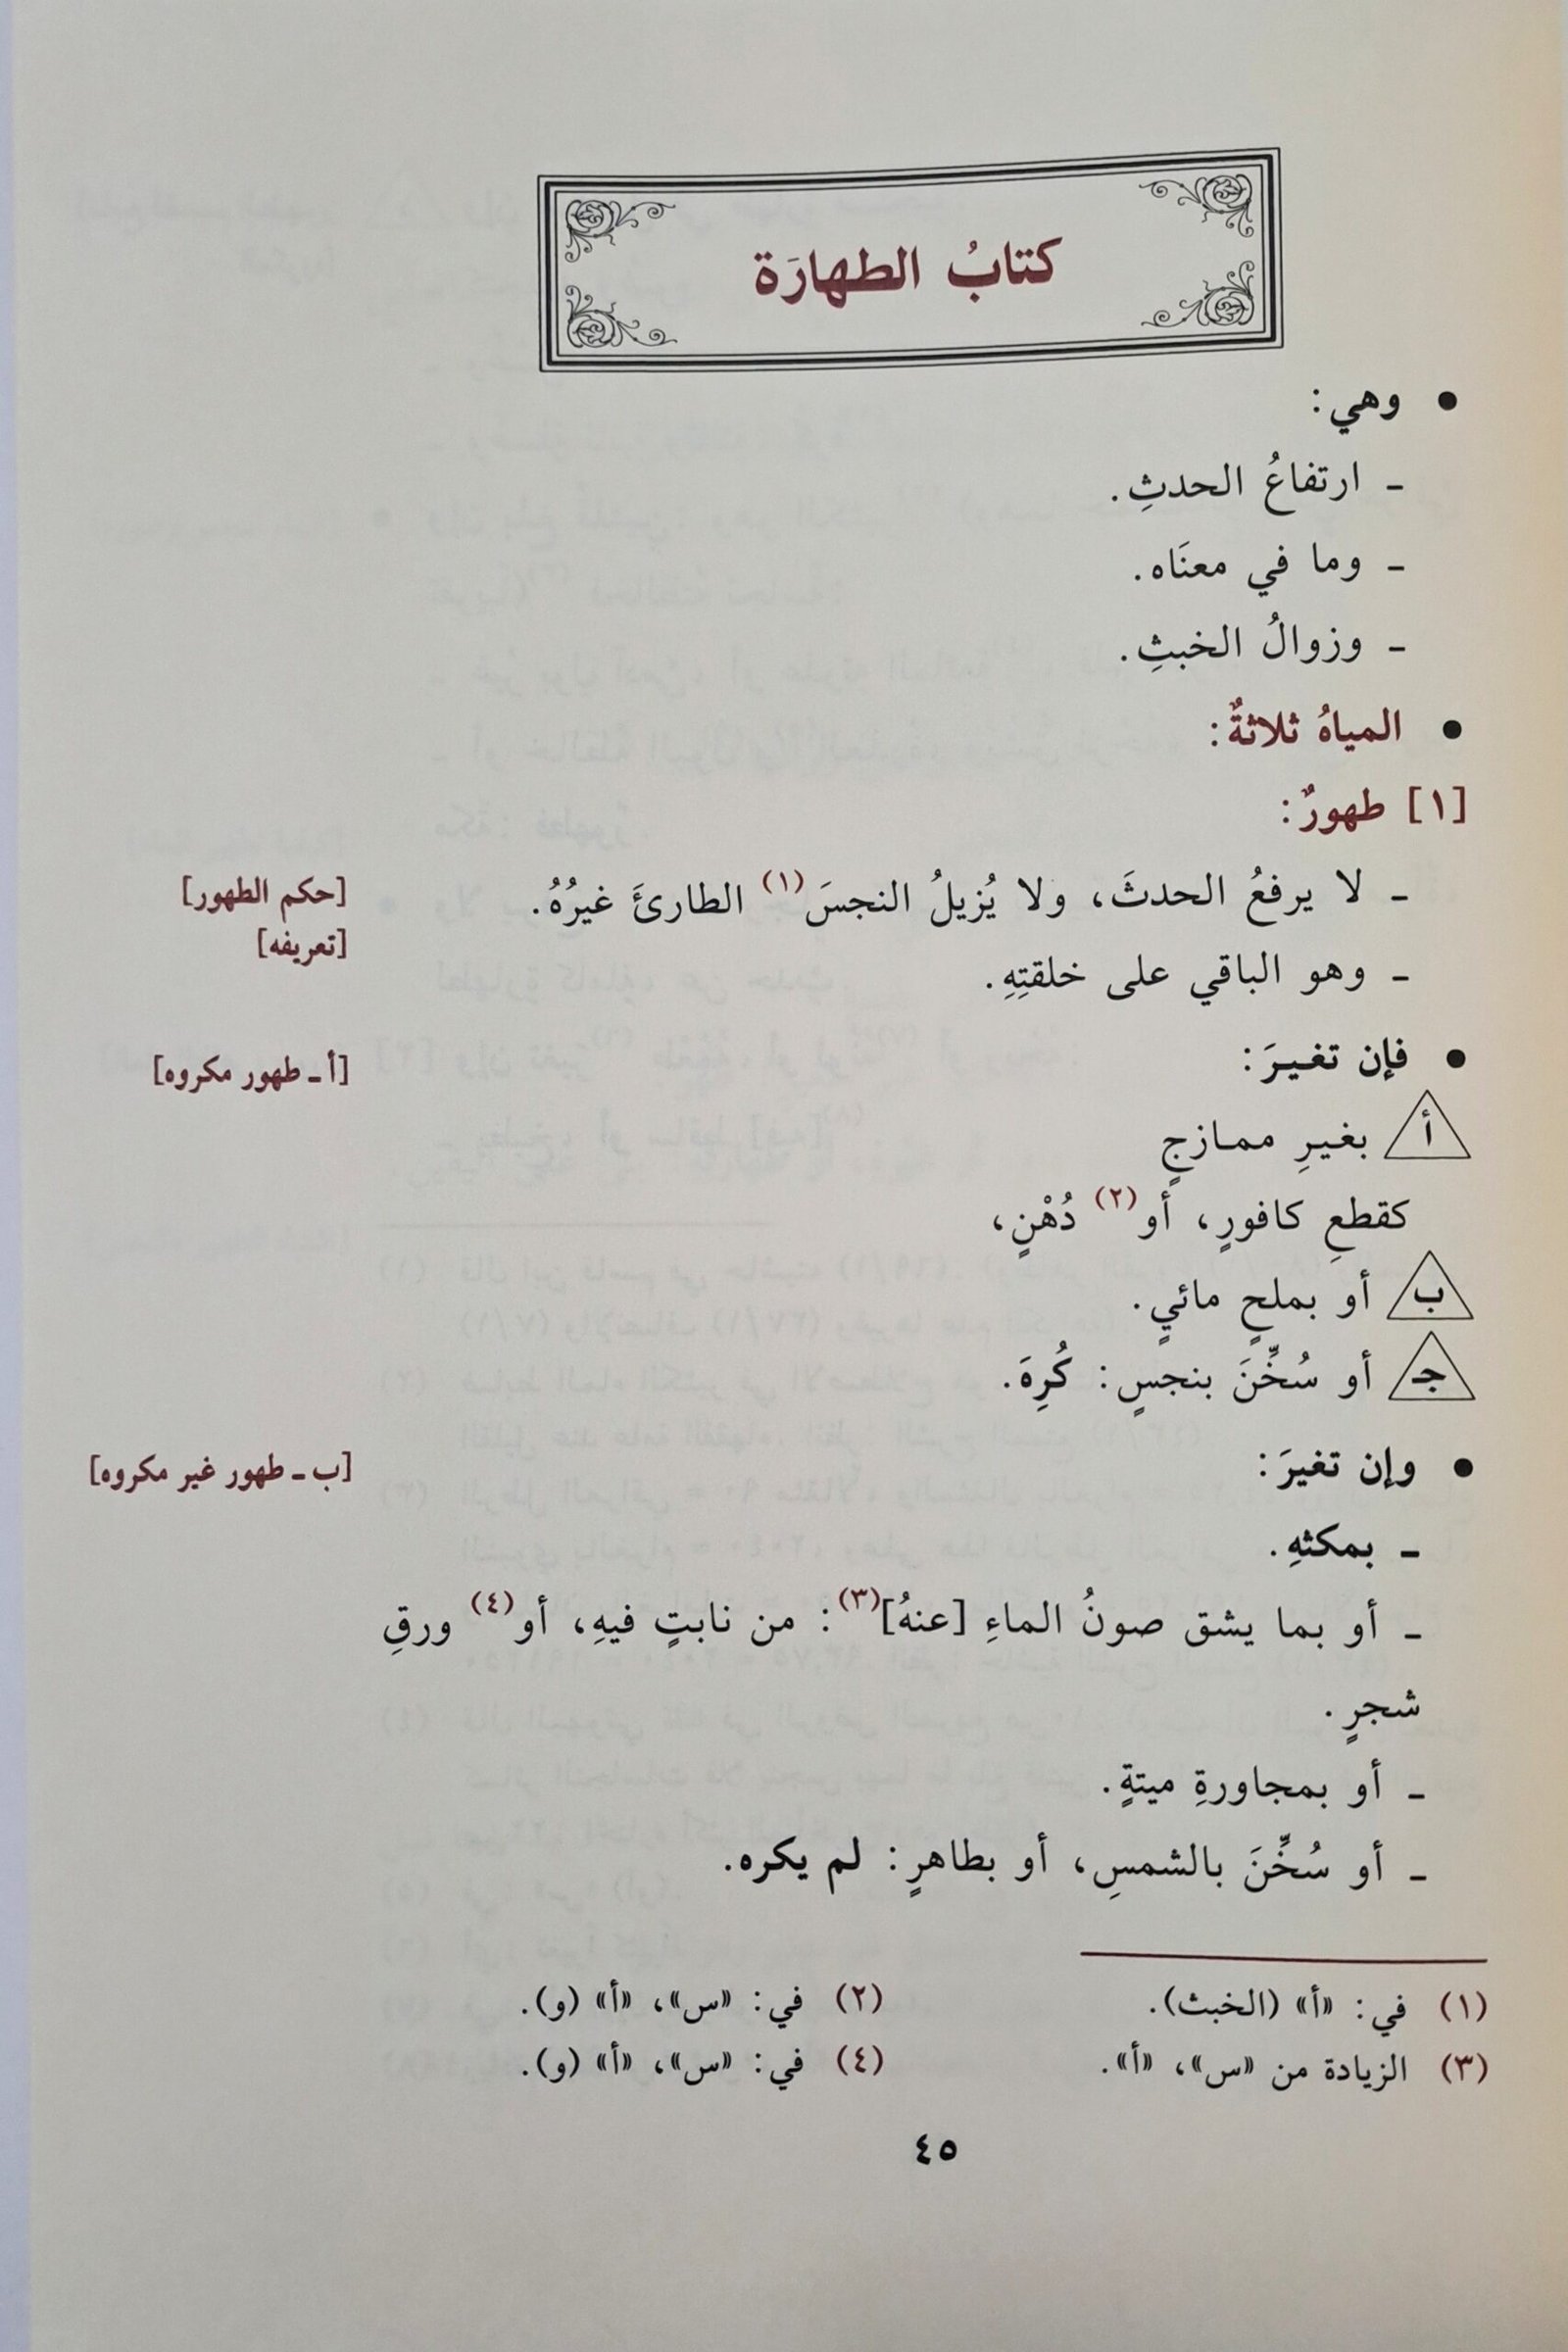 كتابُ الطهارَة
• وهي:
ـ ارتفاعُ الحدثِ.
ـ وما في معنَاه.
ـ وزوالُ الخبثِ.
• المياهُ ثلاثةٌ:
[١] طهورٌ:
ـ لا يرفعُ الحدثَ، ولا يُزيلُ النجسَ(١) الطارئَ غيرُهُ.
[حكم الطهور]
[تعريفه]
ـ وهو الباقي على خلقتِهِ.
• فإن تغيرَ:
[أ ـ طهور مكروه]
أ بغيرِ ممازجٍ
كقطعِ كافورٍ، أو(٢) دُهْنٍ،
ب أو بملحٍ مائيٍ.
جـ أو سُخِّنَ بنجسٍ: كُرِهَ.
• وإن تغيرَ:
[ب ـ طهور غير مكروه]
ـ بمكثهِ.
ـ أو بما يشق صونُ الماءِ [عنهُ](٣): من نابتٍ فيهِ، أو(٤) ورقِ
شجرٍ.
ـ أو بمجاورةِ ميتةٍ.
ـ أو سُخِّنَ بالشمسِ، أو بطاهرٍ: لم يكره.
(١) في: «أ» (الخبث).
(٢) في: «س»، «أ» (و).
(٣) الزيادة من «س»، «أ».
(٤) في: «س»، «أ» (و).
٤٥